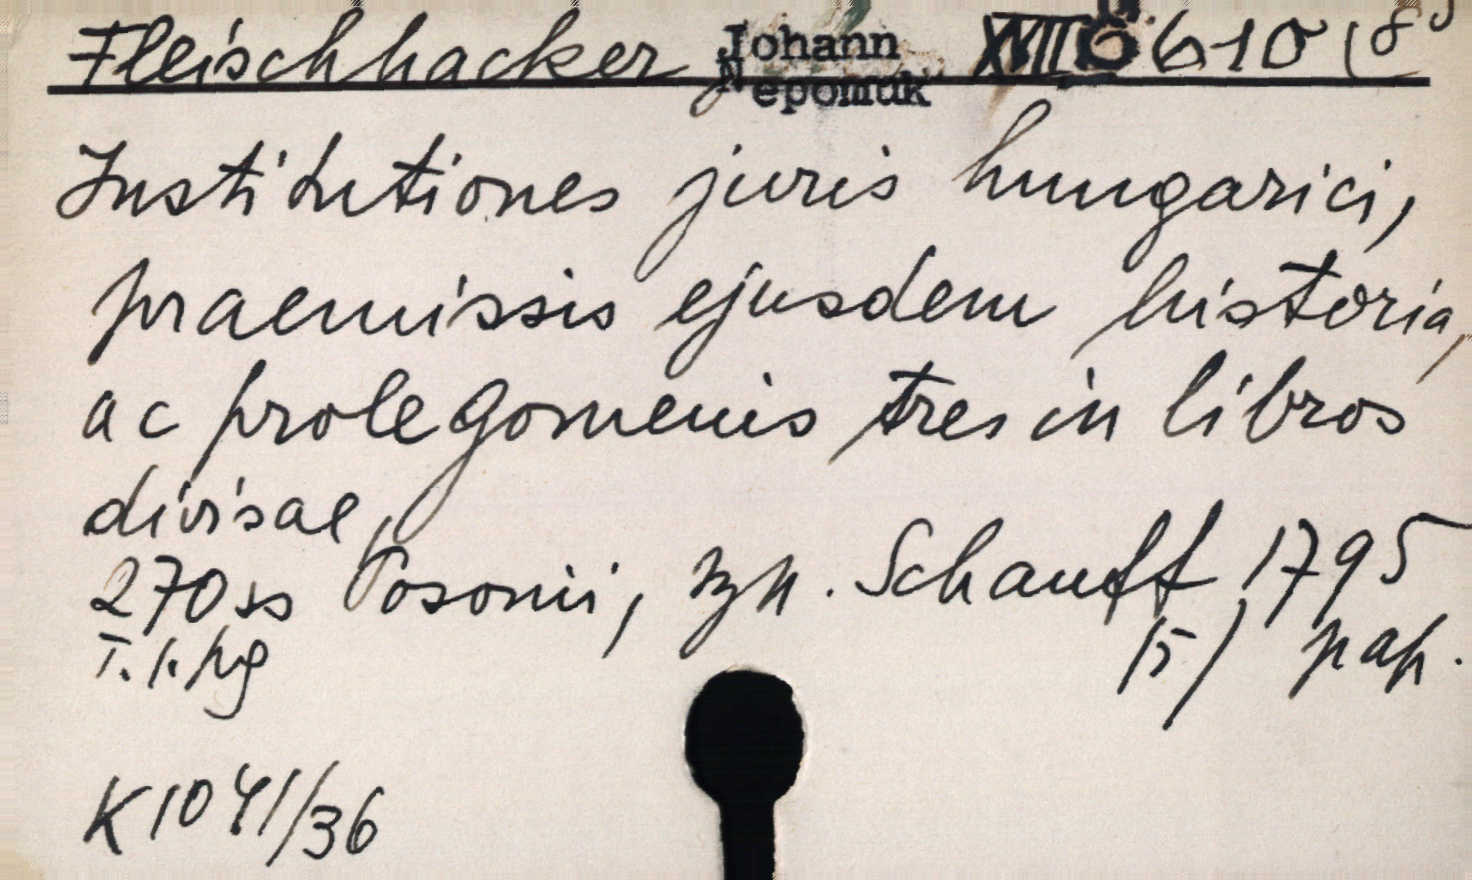 Fleischhacker Johann Nepomuk XVIII Ö 6-10 (8°
Institutiones juris hungarici,
praemissis ejusdem historia,
ac prolegomenis tres in libros
divisae,
270 ss Posonii, Schauff 1795
T. 1. 15/ pap.
K 1041/36